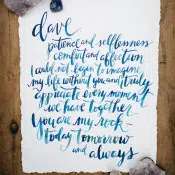 dave
patience and selflessness
comfort and affection
I could not begin to imagine
my life without you and truly
appreciate every moment
we have together
you are my rock
today tomorrow
and always